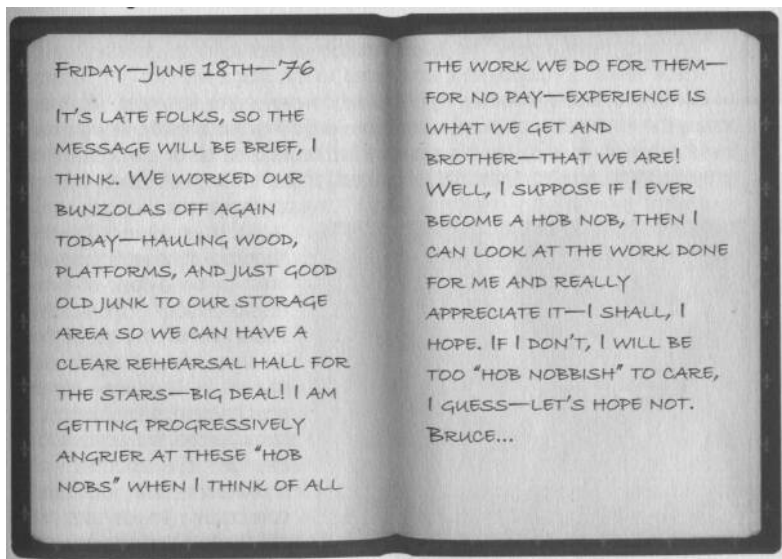 FRIDAY—JUNE 18TH—'76
IT'S LATE FOLKS, SO THE
MESSAGE WILL BE BRIEF, I
THINK. WE WORKED OUR
BUNZOLAS OFF AGAIN
TODAY—HAULING WOOD,
PLATFORMS, AND JUST GOOD
OLD JUNK TO OUR STORAGE
AREA SO WE CAN HAVE A
CLEAR REHEARSAL HALL FOR
THE STARS—BIG DEAL! I AM
GETTING PROGRESSIVELY
ANGRIER AT THESE "HOB
NOBS" WHEN I THINK OF ALL
THE WORK WE DO FOR THEM—
FOR NO PAY—EXPERIENCE IS
WHAT WE GET AND
BROTHER—THAT WE ARE!
WELL, I SUPPOSE IF I EVER
BECOME A HOB NOB, THEN I
CAN LOOK AT THE WORK DONE
FOR ME AND REALLY
APPRECIATE IT—I SHALL, I
HOPE. IF I DON'T, I WILL BE
TOO "HOB NOBBISH" TO CARE,
I GUESS—LET'S HOPE NOT.
BRUCE...